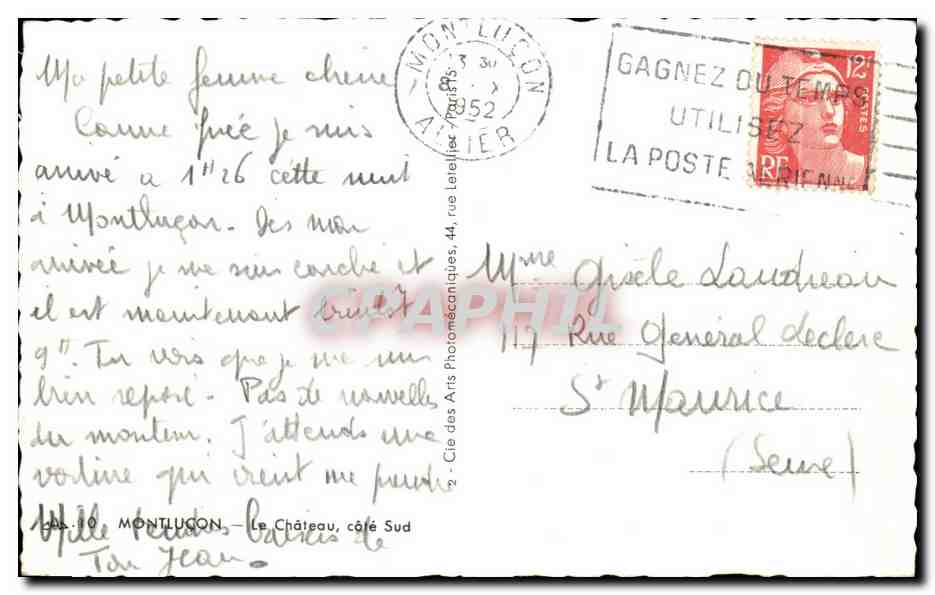 Ma petite femme chérie
Comme prévu je suis
arrivé a 1H26 cette nuit
à Montluçon. Dès mon
arrivée je me suis couché et
il est maintenant bientôt
9H. Tu vois que je me suis
bien reposé. Pas de nouvelles
du monteur. J'attends une
voiture qui vient me prendre
Mille tendres baisers de
Ton Jean.
10 MONTLUÇON - Le Château, côté Sud
2 - Cie des Arts Photomécaniques, 44, rue Letellier, Paris
MONTLUÇON
8 X
1952
ALLIER
GAGNEZ DU TEMPS
UTILISEZ
LA POSTE AERIENNE
12F
POSTES
RF
Mme Gisèle Landreau
117 Rue Général Leclerc
St Maurice
(Seine)
CPAPHIL